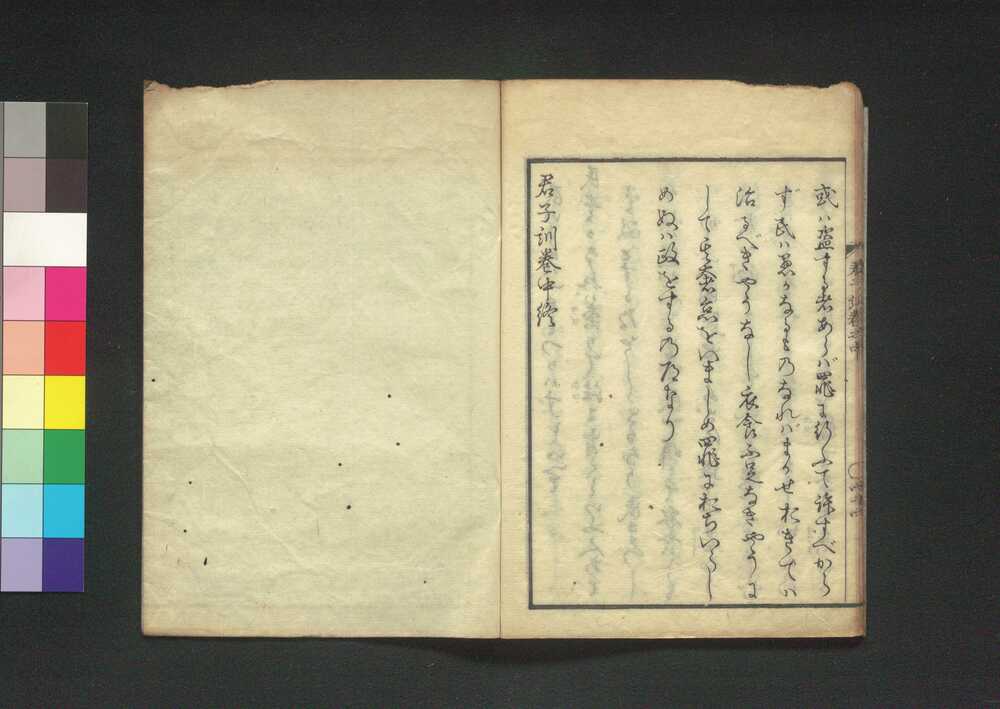 或ハ盗する者あらバ罪に行ふて許すべから
ず民ハ愚かなるもの なれバまかせおきてハ
治るべきやうなし衣食ふ足なきやうに
して其奢怠をいましめ罪におちいらし
めぬハ政をするの道なり
君子訓巻中終
君子訓巻之中